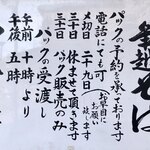 年越そば
パックの予約を承っております
電話にても可（お早目にお願い致します）
〆切り 二十九日
三十日 休ませて頂きます
三十一日 パック販売のみ
パックの受渡し
午前十時より
午後五時